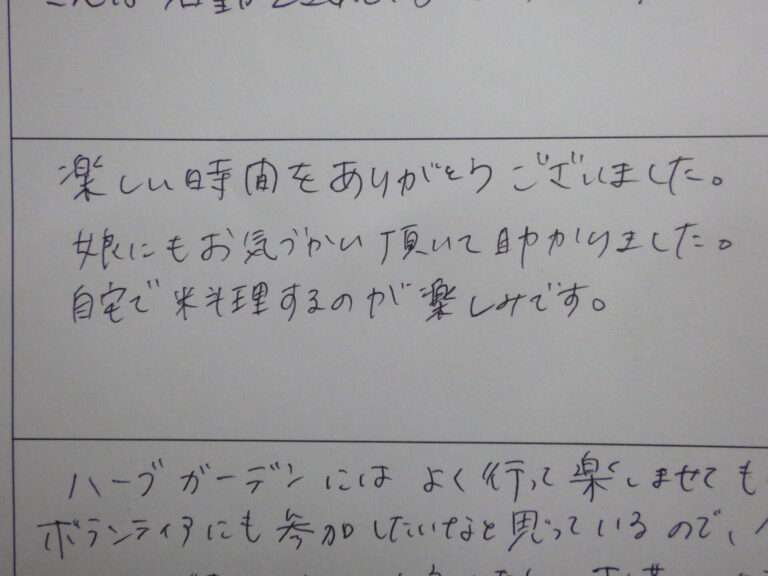 楽しい時間をありがとうございました。
娘にもお気づかい頂いて助かりました。
自宅で料理するのが楽しみです。
ハーブガーデンには よく行って楽しませても
ボランティアにも参加したいなと思っているので、